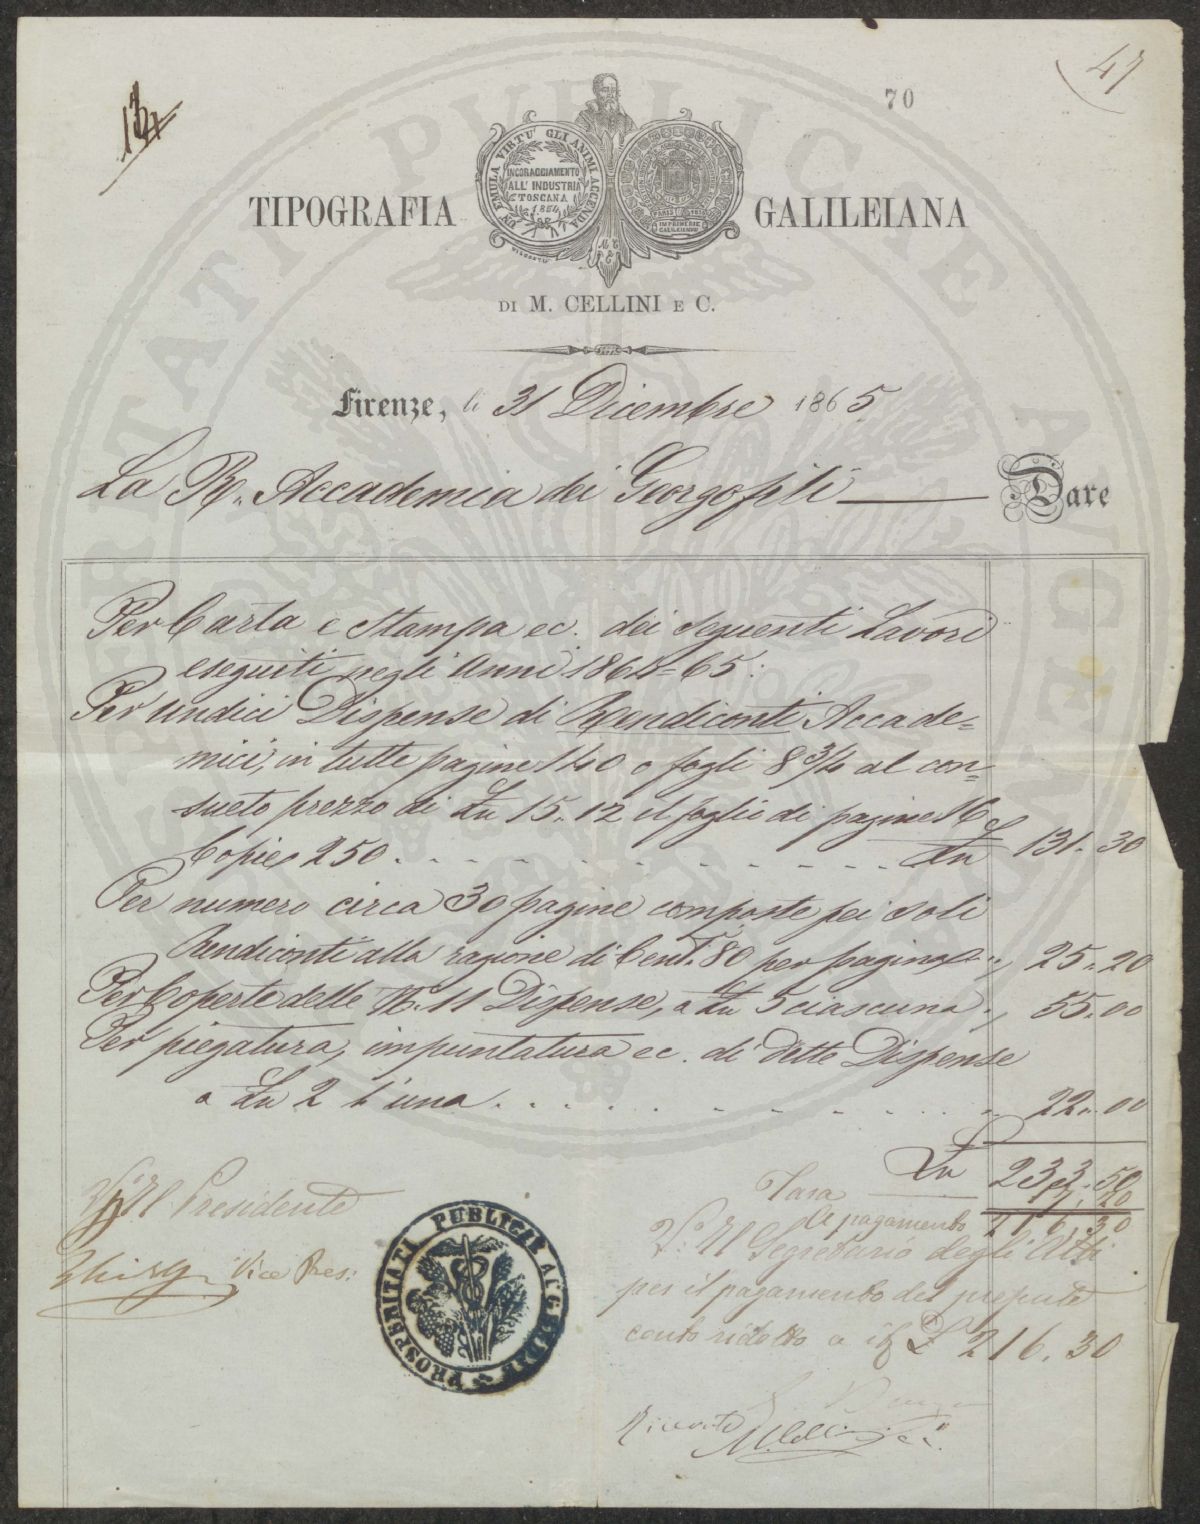 47
70
134
UN EMULA VIRTU' GLI ANIMI ACCENDA
INCORAGGIAMENTO
ALL' INDUSTRIA
TOSCANA
1854
PARIS 1855
IMPRIMERIE
GALILEIENNE
TIPOGRAFIA GALILEIANA
DI M. CELLINI E C.
Firenze, li 31 Dicembre 1865
La R. Accademia dei Georgofili Dare
Per Carta e Stampa ec. dei seguenti Lavori
eseguiti negli Anni 1864=65:
Per undici Dispense di Rendiconti Accade=
mici, in tutte pagine 140 o fogli 8 3/4 al con=
sueto prezzo di Ln 15.12 il foglio di pagine 16
Copie 250 . . . . . . . . . . . Ln 131.30
Per numero circa 30 pagine composte pei soli
Rendiconti alla ragione di Cent. 80 per pagina „ 25.20
Per Coperte delle N. 11 Dispense, a Ln 5 ciascuna „ 55.00
Per piegatura, impuntatura ec. di dette Dispense
a Ln 2 l'una . . . . . . . . . . . „ 22.00
Ln 233.50
Tara 17.20
Al pagamento 216.30
V° Il Presidente
Vice Pres:
V: Il Segretario degli Atti
per il pagamento del presente
conto ridotto a it £ 216.30
Ricevuto
M. Cellini e C.
PROSPERITATI PUBLICAE AUGENDAE
PROSPERITATI PVBLICAE AVGENDAE